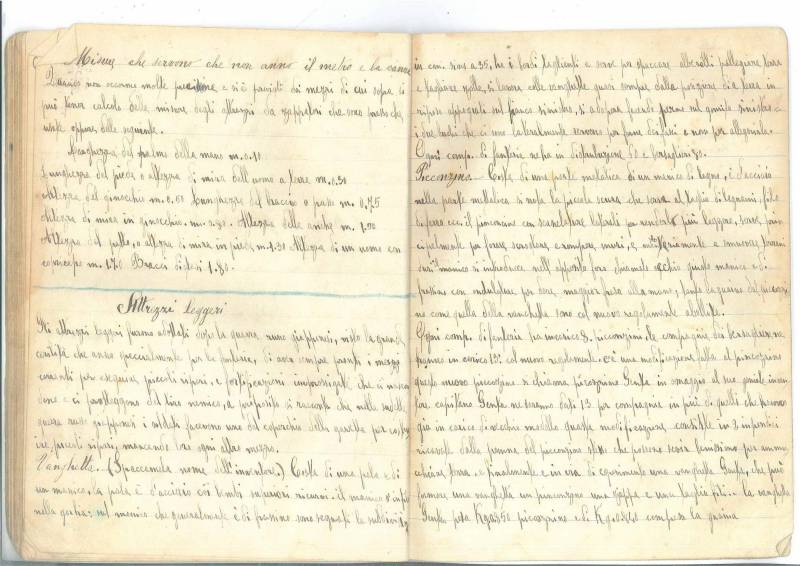 Misure che servono che non anno il metro e la canna
Quando non occorre molta precisione e si è provvisti dei mezzi di cui sopra si
può tener calcolo delle misure degli attrezzi da zappatori che sono
oppure delle seguente.
Larghezza del palmo della mano m. 0.10
Lunghezza del piede o altezza di mira dell'uomo a terra m. 0.30
Altezza del ginocchio m. 0.50 Lunghezza del braccio o passo m. 0.75
Altezza di mira in ginocchio m. Altezza delle anche m. 1.00
Altezza del petto, o altezza di mira in piedi m. 1.30 Altezza di un uomo con
m. 1.70 Bracci distesi 1.80.
Attrezzi leggeri
Gli attrezzi leggeri furono adottati dopo la guerra russo giapponese, visto la grande
utilità che anno specialmente per la fanteria, di aver sempre pronti i mezzi
per eseguire piccoli ripari, e fortificazioni che ci nascon
dono e ci proteggono dal tiro nemico, a proposito si racconta che nella suddetta
guerra russo giapponese i soldati facevano uso del coperchio della gavetta per costru
ire piccoli ripari, mancando loro ogni altro mezzo.
Vanghetta. (Spaccamela nome dell'inventore.) Consta di una pala e di
un manico. la pala è d'acciaio coi bordi superiori ricurvi. il manico
nella gorbia: sul manico che generalmente è di frassino sono segnate le suddivisi
in cm. sino a 35, ha i bordi taglienti e serve per spaccare alberetti pelleggiare terra
e tagliare zolle, si lavora colle vanghette quasi sempre dalla posizione di a terra in
riposo appoggiati sul fianco sinistro, si adopera facendo perno sul gomito sinistro
i due buchi che ci sono lateralmente servono per fune dei fili e non per allegerirla.
Ogni comp. di fanteria ne ha in distribuzione 50 e bersaglieri 80.
Piccozzino. Consta di una parte metallica di un manico di legno, è d'acciaio
nella parte metallica si nota la piccola scure che serve al taglio di legnami, fili
di ferro ecc. il piccozzino con scanalature laterali per renderlo più leggero, serve prin
cipalmente per forare, scrostare e rompere muri, e a smuovere terreni
duri. il manico si introduce nell'apposito foro chiamato occhio questo manico è di
frassino con ondulature per aver maggior presa alla mano, tanto la guaina del piccozzi
no come quella della vanghetta son col nuovo regolamento abolite.
Ogni comp. di fanteria ha in carico 8. piccozzini, le compagnie dei bersaglieri ne
hanno in carico 15. col nuovo regolamento. c'è una modificazione fatta al piccozzino
questo nuovo piccozzino si chiama piccozzino Gensa in omaggio al suo geniale inven
tore. capitano Gensa ne saranno dati 13 per compagnia in più di quelli che
già in carico di vecchio modello questa modificazione consiste in
ricavate dalla penna del piccozzino stesso che possono servir benissimo per
terra. e finalmente e in via di esperimento una vanghetta Gensa, che può
formare una vanghetta un piccozzino una zappa e una taglia fili.. la vanghetta
Gensa pesa Kg 0.950 piccozzino è di Kg. 0.840 compresa la guaina